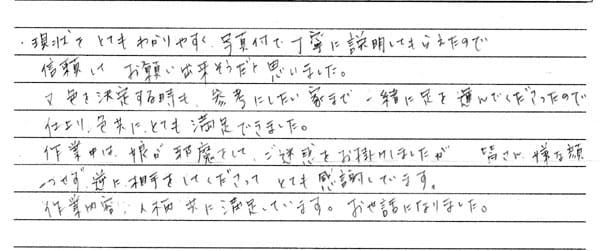 ・現状をとてもわかりやすく、写真付で丁寧に説明してもらえたので
信頼して お願い出来そうだと思いました。
又色を決定する時も、参考にしたい家まで一緒に足を運んでくださったので
仕上り、色共に、とても満足できました。
作業中は、娘が邪魔をして、ご迷惑をお掛けしましたが 皆さん嫌な顔
一つせず、逆に相手をしてくださって とても感謝しています。
作業内容、人柄共に満足しています。お世話になりました。